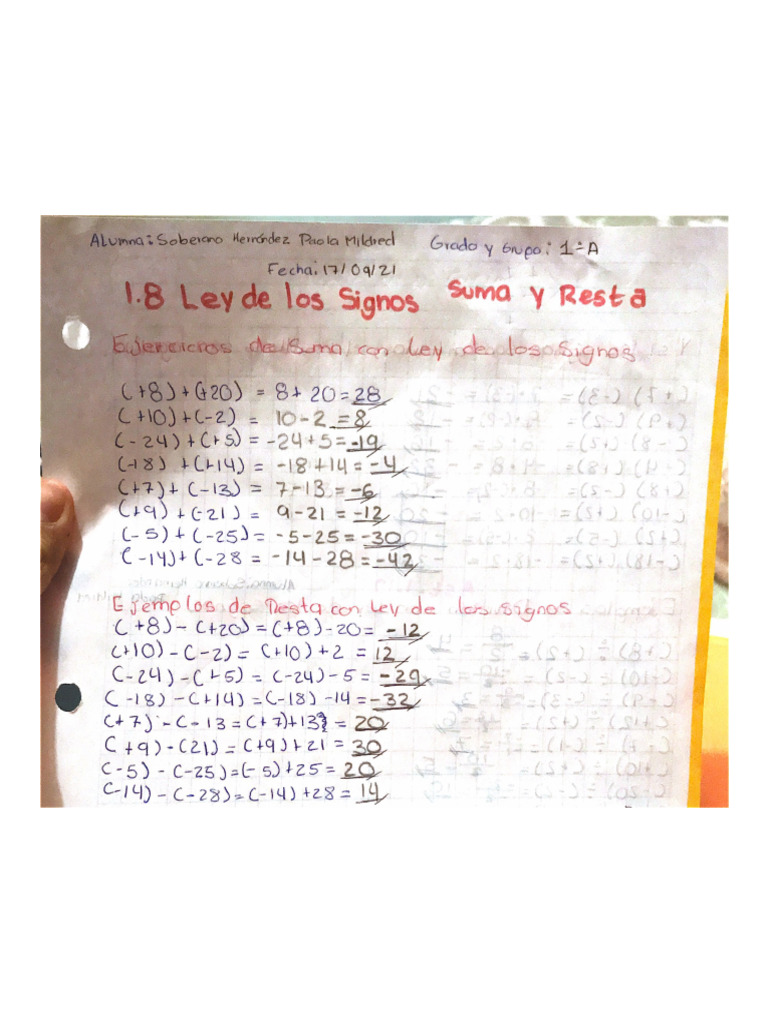 Alumna: Soberano Hernández Paola Mildred Grado y Grupo: 1-A
Fecha: 17/09/21
1.8 Ley de los Signos Suma y Resta
Ejercicios de Suma con Ley de los Signos
(+8)+(+20) = 8+20=28
(+10)+(-2) = 10-2=8
(-24)+(+5)=-24+5=-19
(-18)+(+14)=-18+14=-4
(+7)+(-13)= 7-13=-6
(+9)+(-21)= 9-21=-12
(-5)+(-25)=-5-25=-30
(-14)+(-28=-14-28=-42
Ejemplos de resta con Ley de los signos
(+8)-(+20)=(+8)-20=-12
(+10)-(-2)=(+10)+2=12
(-24)-(+5)=(-24)-5=-29
(-18)-(+14)=(-18)-14=-32
(+7)-(-13=(+7)+13=20
(+9)-(21)=(+9)+21=30
(-5)-(-25)=(-5)+25=20
(-14)-(-28)=(-14)+28=14